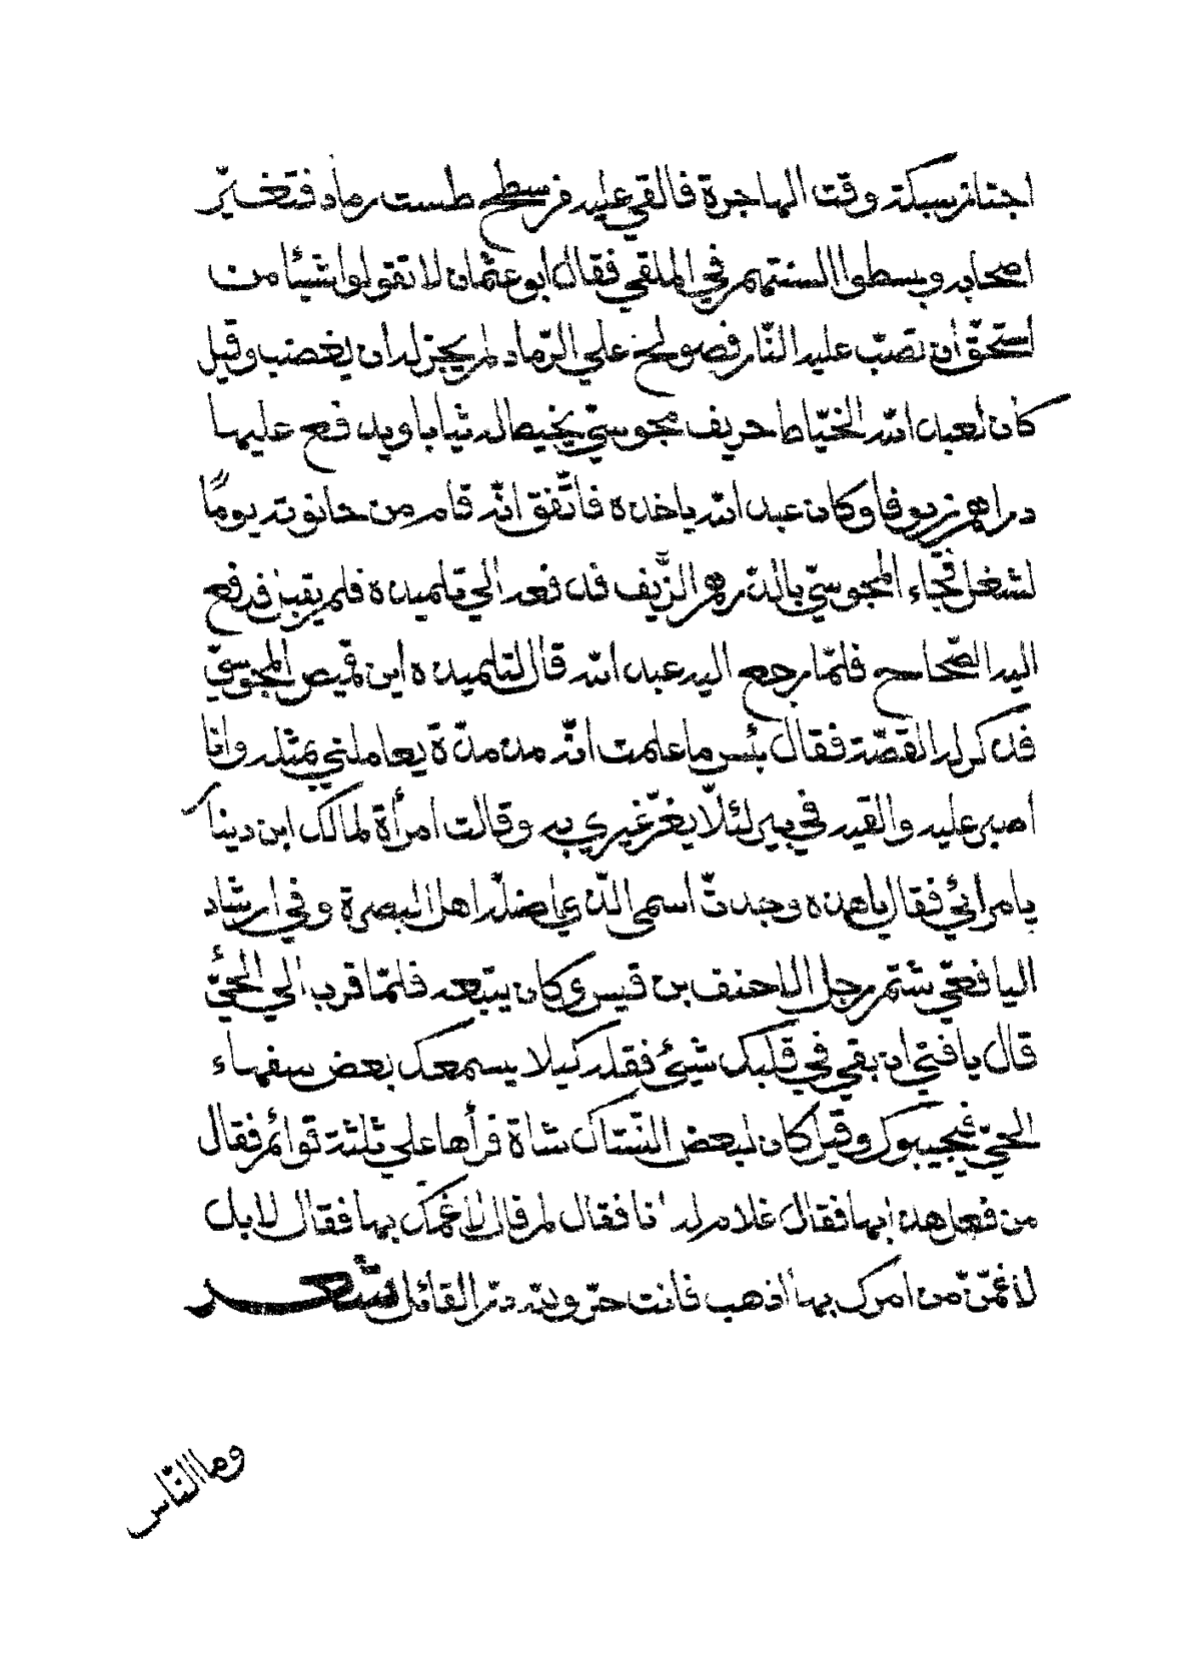 اجتاز بسكة وقت الهاجرة فالقي عليه من سطح طست رماد فتغيّر
اصحابه وبسطوا السنتهم في الملقي فقال ابو عثمان لا تقولوا شيئا من
استحقّ أن تصبّ عليه النّار فصولح علي الرّماد لم يجز له ان يغضب وقيل
كان لعبد الله الخيّاط حريف مجوسيّ يخيط له ثيابا ويدفع عليها
دراهم زيوفا وكان عبد الله ياخذه فاتّفق انّه قام من حانوته يومًا
لشغل فجاء المجوسيّ بالدّرهم الزّيف فدفعه الي تلميذه فلم يقبل فدفع
اليه الصّحاح فلمّا رجع اليه عبد الله قال لتلميذه اين قميص المجوسيّ
فذكر له القصّة فقال بئس ما علمت انّه من مدّة يعاملني بمثله وانا
اصبر عليه والقيه في بير لئلّا يغرّ غيري به وقالت امرأة لمالك ابن دينار
يا مرائي فقال يا هذه وجدتّ اسمي الّذي اضلّه اهل البصرة وفي ارشاد
اليافعي شتم رجل الاحنف بن قيس وكان يتبعه فلمّا قرب الي الحيّ
قال يا فتي ان بقي في قلبك شيئ فقله كيلا يسمعك بعض سفهاء
الحيّ فيجيبوك وقيل كان لبعض النّسّاك شاة فرأها علي ثلثة قوائم فقال
من فعل هذا بها فقال غلام له انا فقال لم قال لاغمّك بها فقال لا بل
لاغمّنّ من امرك بها اذهب فانت حرّ ولله درّ القائل شعر
وما النّاس